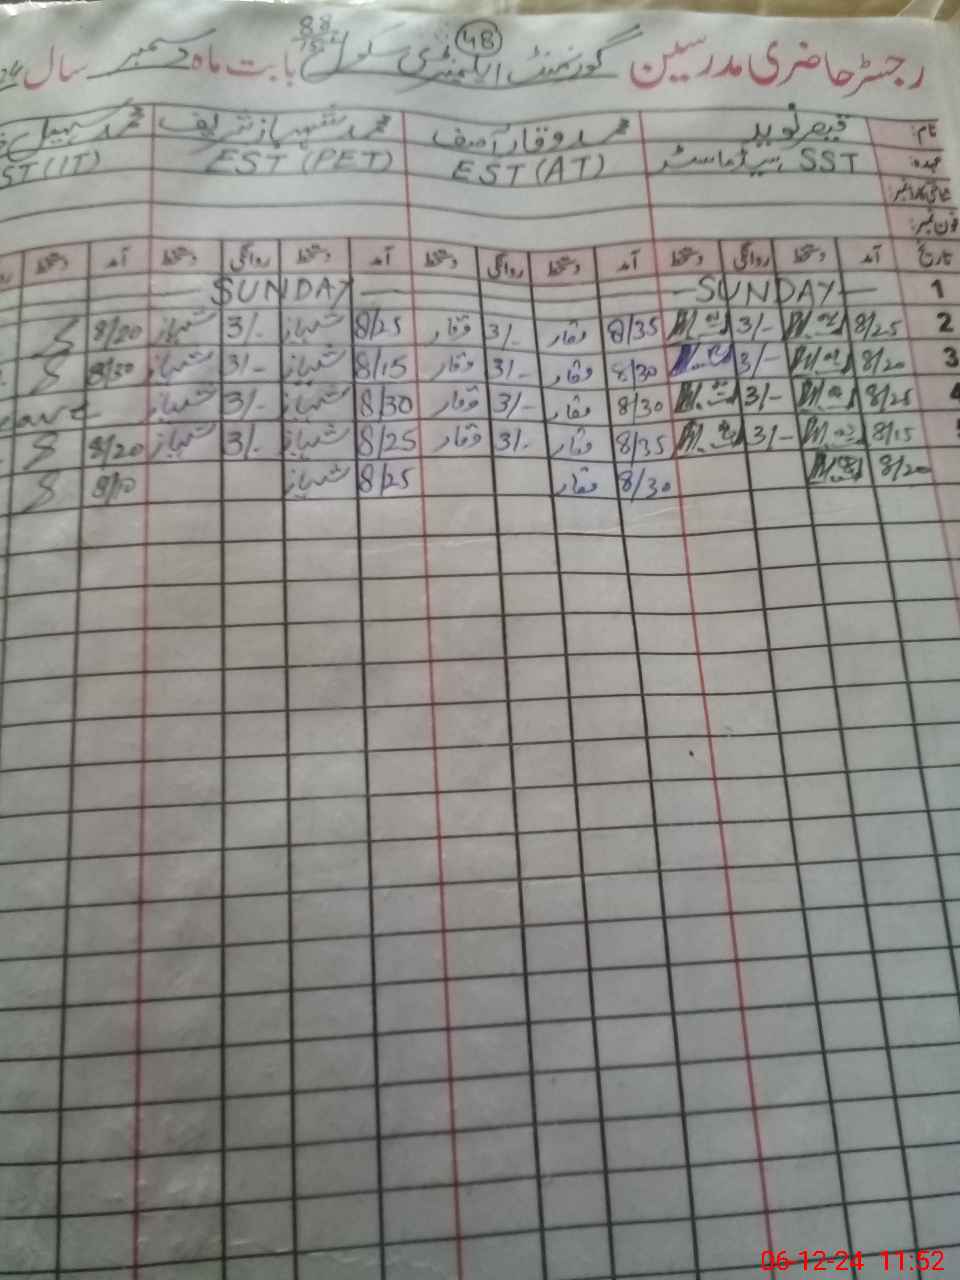 48
رجسٹر حاضری مدرسین گورنمنٹ ایلیمنٹری سکول 88/15-L بابت ماہ دسمبر سال
نام: قیصر نوید محمد وقار آصف محمد شہباز شریف محمد سہیل
عہدہ: SST ہیڈ ماسٹر EST (AT) EST (PET) EST (IT)
شناختی کارڈ نمبر:
فون نمبر:
تاریخ آمد دستخط روانگی دستخط آمد دستخط روانگی دستخط آمد دستخط روانگی دستخط آمد دستخط
1 SUNDAY SUNDAY
2 8/25 3/- 8/35 وقار 3/- وقار 8/25 شہباز 3/- شہباز 8/20
3 8/20 3/- 8/30 وقار 3/- وقار 8/15 شہباز 3/- شہباز 8/30
4 8/25 3/- 8/30 وقار 3/- وقار 8/30 شہباز 3/- شہباز
8/15 3/- 8/35 وقار 3/- وقار 8/25 شہباز 3/- شہباز 8/20
8/20 8/30 وقار 8/25 شہباز 8/10
06-12-24 11:52